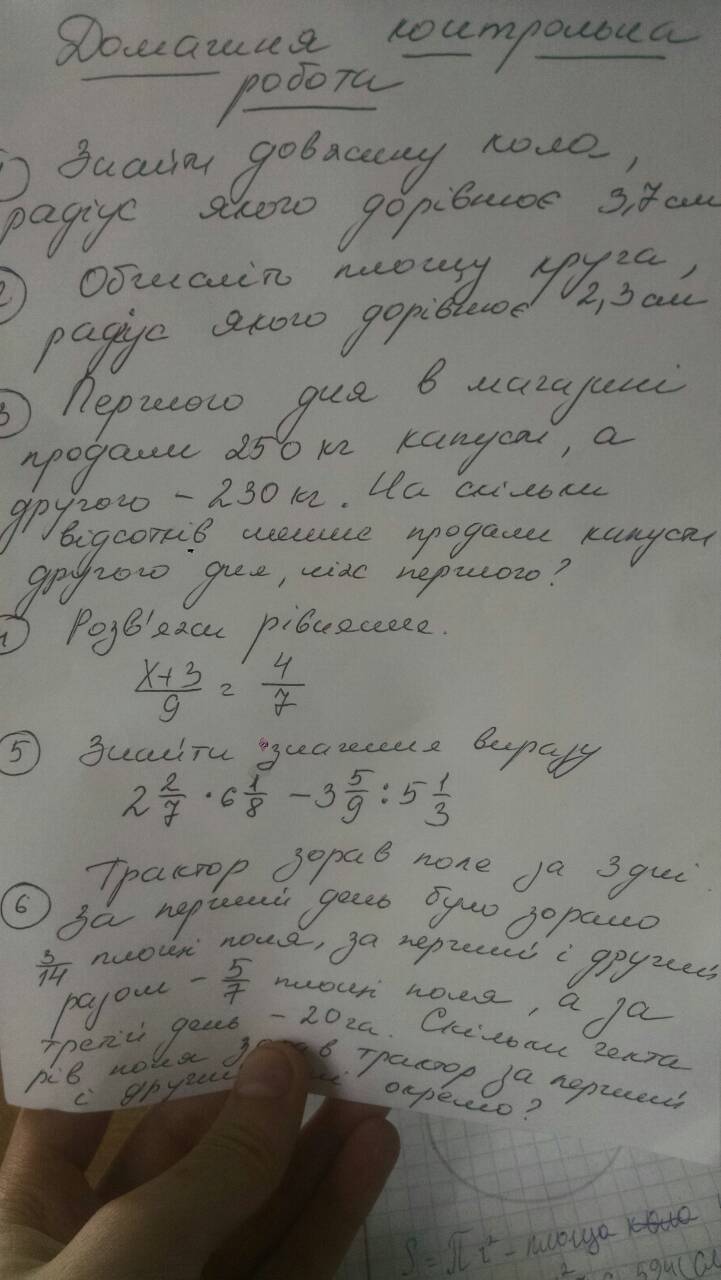 Домашня контрольна
роботи
1) Знайти довжину кола,
радіус якого дорівнює 3,7 см
2) Обчисліть площу круга,
радіус якого дорівнює 2,3 см
3) Першого дня в магазині
продали 250 кг капусти, а
другого – 230 кг. На скільки
відсотків менше продали капусти
другого дня, ніж першого?
4) Розв'яжи рівняння.
x+3/9 = 4/7
5) Знайти значення виразу
2 2/7 · 6 1/8 – 3 5/9 : 5 1/3
Трактор зорав поле за 3 дні.
6) За перший день було зорано
3/14 площі поля, за перший і другий
разом – 5/7 площі поля, а за
третій день – 20 га. Скільки гекта
рів поля зорав трактор за перший
і другий окремо?
S = πr² – площа кола